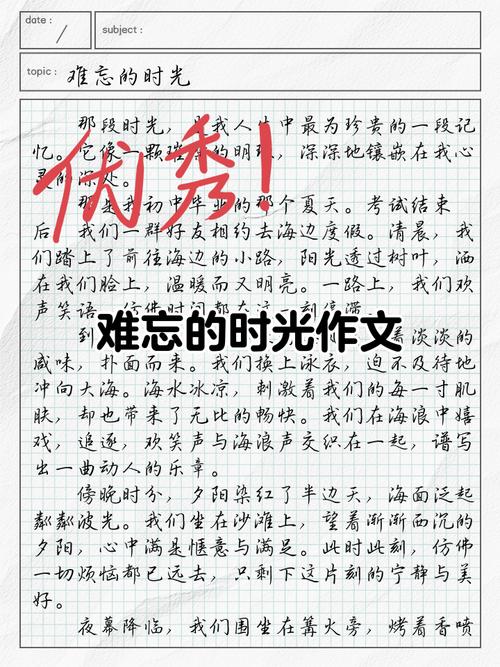 date :
subject :
topic : 难忘的时光
那段时光，是我人生中最为珍贵的一段记
忆。它像一颗璀璨的明珠，深深地镶嵌在我心
灵的深处。
优秀!
那是我初中毕业的那个夏天。考试结束
后，我们一群好友相约去海边度假。清晨，我
们踏上了前往海边的小路，阳光透过树叶，洒
在我们脸上，温暖而又明亮。一路上，我们欢
声笑语，仿佛时间都在这一刻停滞。
难忘的时光作文
到 着淡淡的
咸味，扑面而来。我们换上泳衣，迫不及待地
冲向大海。海水冰凉，刺激着我们的每一寸肌
肤，却也带来了无比的畅快。我们在海浪中嬉
戏，追逐，欢笑声与海浪声交织在一起，谱写
出一曲动人的乐章。
傍晚时分，夕阳染红了半边天，海面泛起
粼粼波光。我们坐在沙滩上，望着渐渐西沉的
夕阳，心中满是惬意与满足。此时此刻，仿佛
一切烦恼都已远去，只剩下这片刻的宁静与美
好。
夜幕降临，我们围坐在篝火旁，烤着香喷